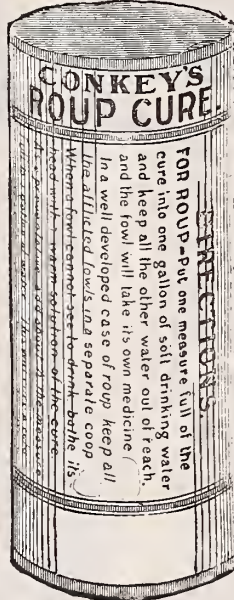 CONKEY'S
ROUP CURE.
DIRECTIONS
FOR ROUP=Put one measure full of the
cure into one gallon of soft drinking water
and keep all the other water out of reach,
and the fowl will take its own medicine
In a well developed case of roup keep all
the afflicted fowls in a separate coop
When a fowl cannot see to drink bathe its
head with a warm solution of the cure
As a preventative add the measure
water